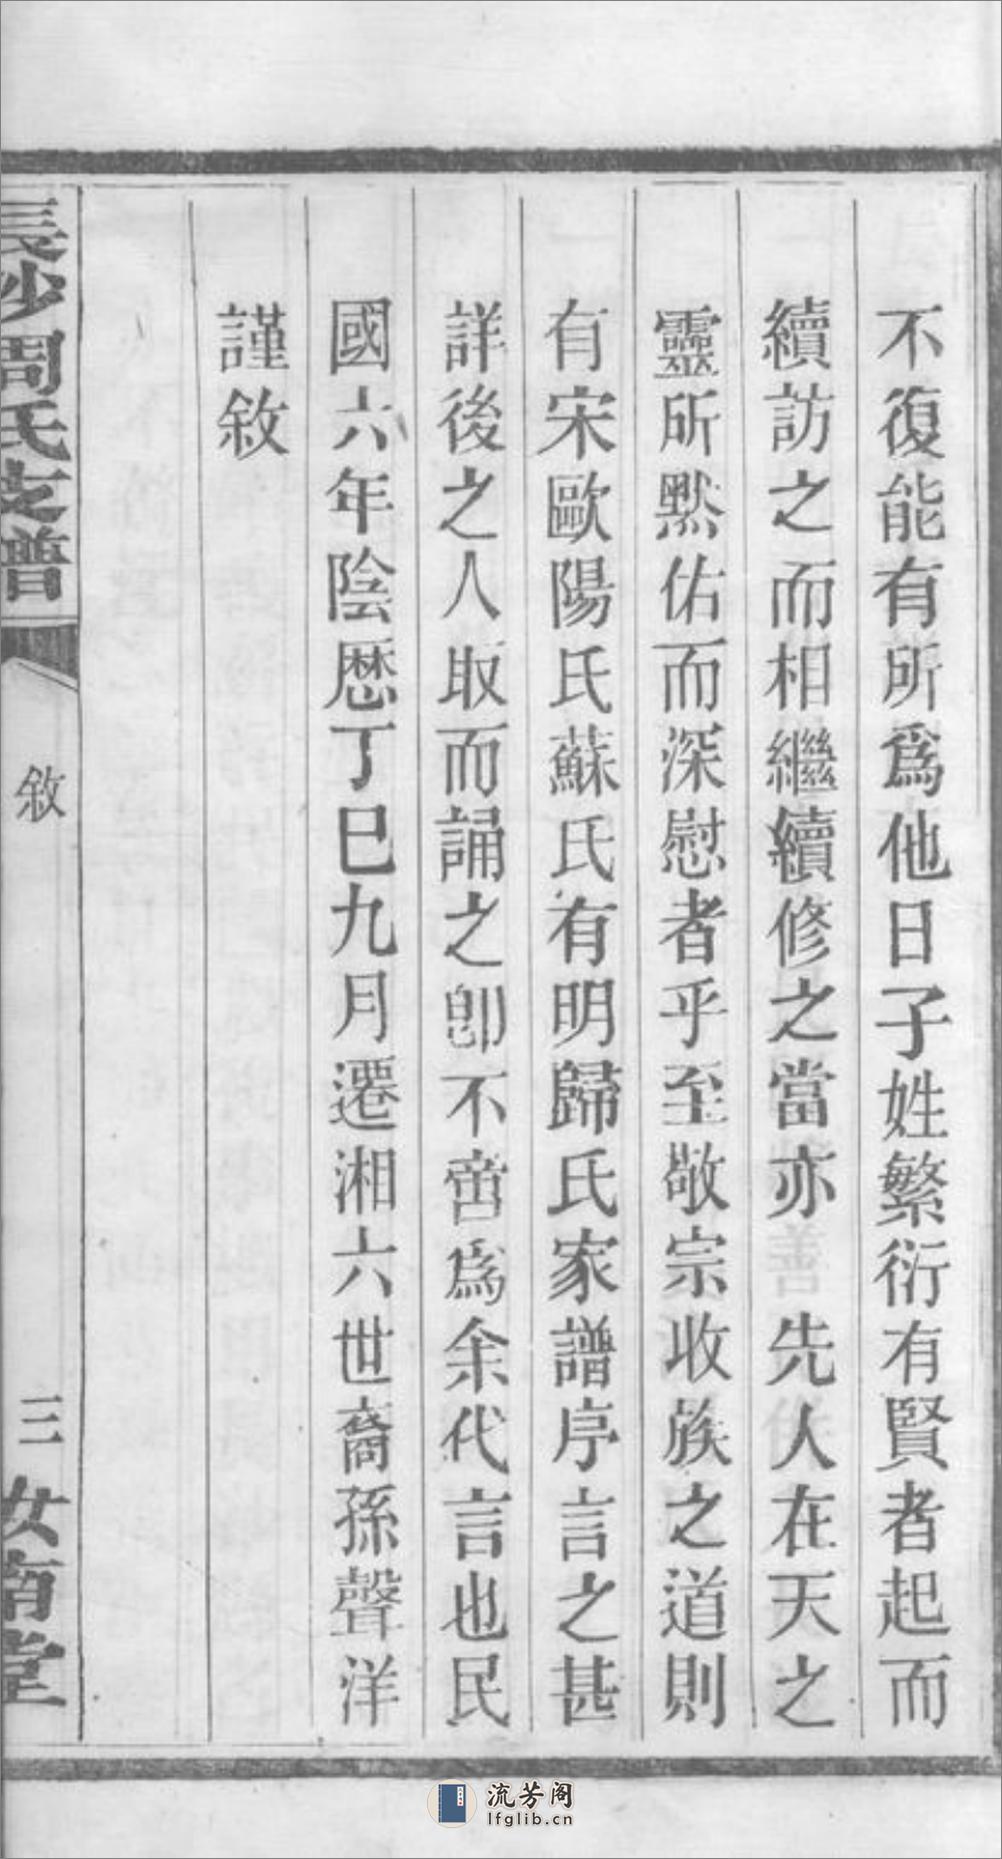 不復能有所爲他日子姓繁衍有賢者起而
續訪之而相繼續修之當亦　先人在天之
靈所默佑而深慰者乎至敬宗收族之道則
有宋歐陽氏蘇氏有明歸氏家譜序言之甚
詳後之人取而誦之卽不啻爲余代言也民
國六年陰厯丁巳九月遷湘六世裔孫聲洋
謹敘
長沙周氏支譜
敘
三
汝南堂
流芳阁
lfglib.cn